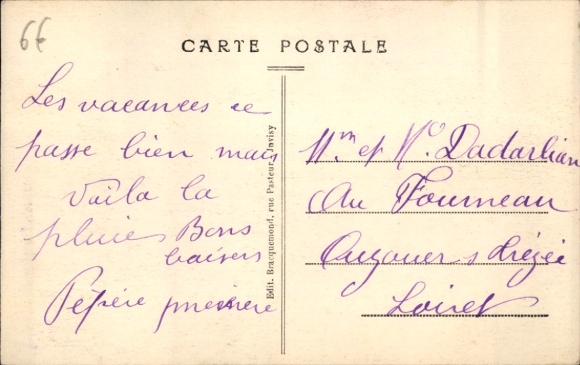 6€
CARTE POSTALE
Les vacances ce
passe bien mais
Voila la
pluie Bons
baisers
Pépére mémere
Edit. Bracquemond, rue Pasteur, Juvisy
Mm et Mr Dadarlian
Au Fourneau
Loiret